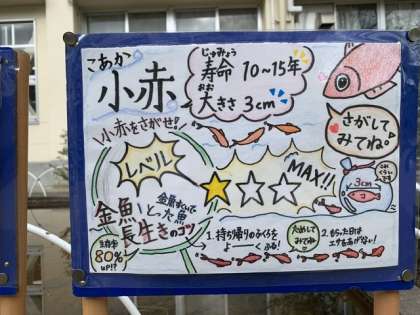 こあか
小赤
じゅみょう
寿命 10~15年
おお
大きさ 3cm
さがして
みてね。
小赤をさがせ!
レベル
MAX!!
3cm
金魚すくいで
とった魚
金魚
長生きのコツ
生存率
80%
up!?
1. 持ち帰りのふくろを
よーくふる!
ためして
みてね♡
2. もらった日は
エサをあげない!